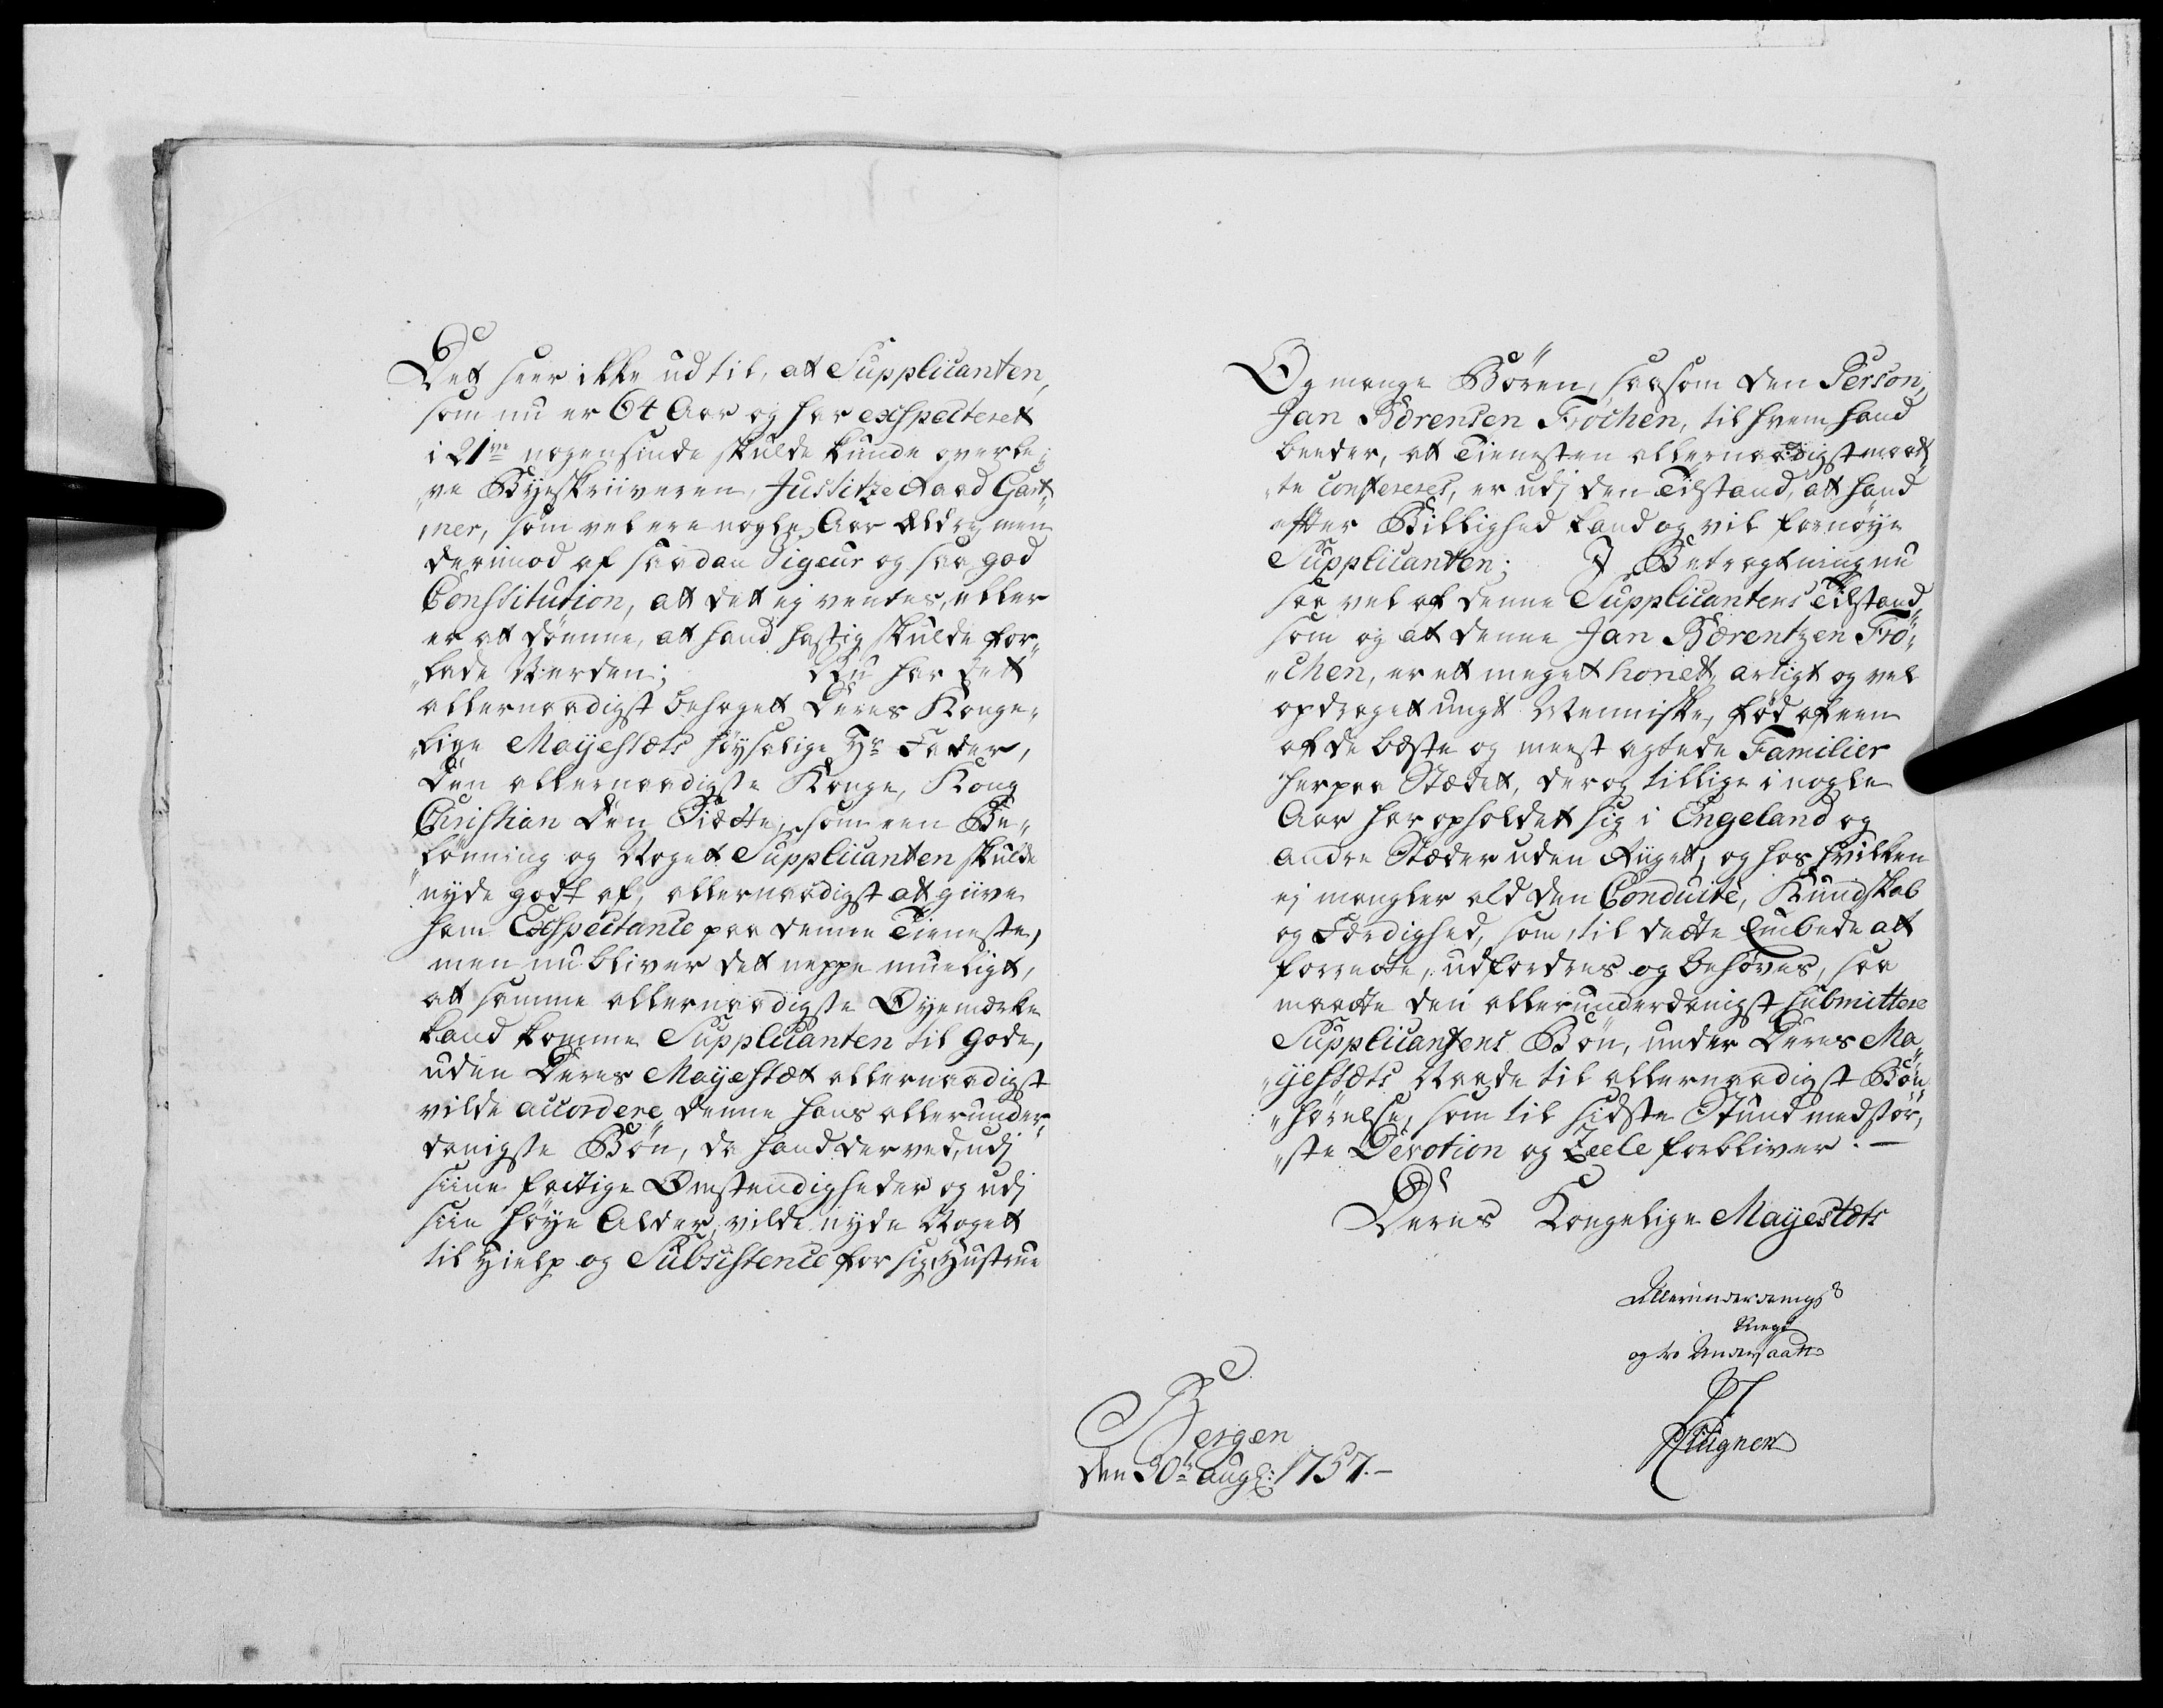 Det seer ikke ud til, at Supplicanten,
som nu er 64 Aar og har exspecteret
i 21ve nogensinde skulde kunde overle„
„ve Byeskriiveren, Justitze Raad Gart„
„ner, som vel ere nogle Aar Eldre, men
derimod af saadan Vigeur og saa god
Constitution, att dett ej ventes, eller
er att dømme, at hand hastig skulde for„
„lade Verden; Nu har Dett
allernaadigst behaget Deres Konge„
„lige Mayestæts Høysalige Hr Fader,
den allernaadigste Konge, Kong
Christian den Siætte, som een Be„
„lønning og Noget Supplicanten skulde
nyde godt af, allernaadigst att giive
ham Exspectance paa denne Tieneste,
men nu bliver det neppe mueligt,
att samme allernaadigste Øyemærke
kand komme Supplicanten til gode,
uden Deres Mayestæt allernaadigst
vilde accordere denne hans allerunder„
danigste Bøn, da hand derved, udj
siine faitige Omstendigheder og udj
siin høye Alder, vilde nyde Noget
til Hielp og Subsistence for sig, Hustrue
Og mange Børen, saasom den Person,
Jan Børensen Frochen, til hvem hand
beeder, att Tienesten allernaadigst maat„
„te confereres, er udj den Tilstand, att hand
efter Billighed kand og vil fornøye
Supplicanten; I Betragtning nu
saa vel af denne Supplicantens Tilstand,
som og att denne Jan Børentzen Fro„
„chen, er ett meget honet, artigt og vel
opdraget ungt Menniske, fød af een
af de bæste og meest agtede Familier
her paa Stædet, der og tillige i nogle
Aar har opholdet sig i Engeland og
andre Stæder uden Riiget, og hos hvilken
ej mangler ald den Conduite, Kundskab
og Færdighed, som, til dette Embede att
forrette, udfordres og behøves, saa
maatte den allerunderdanigst submittere
Supplicantens Bøn, under Deres Ma„
„yestæts Naade til allernaadigst Bøn„
„hørelse, som til sidste Stund med stør„
„ste Devotion og Zeele forbliver. —
Deres Kongelige Mayestæts
Allerunderdanigste
og tro Undersaatt
Bergen
den 30te Augs: 1757. —